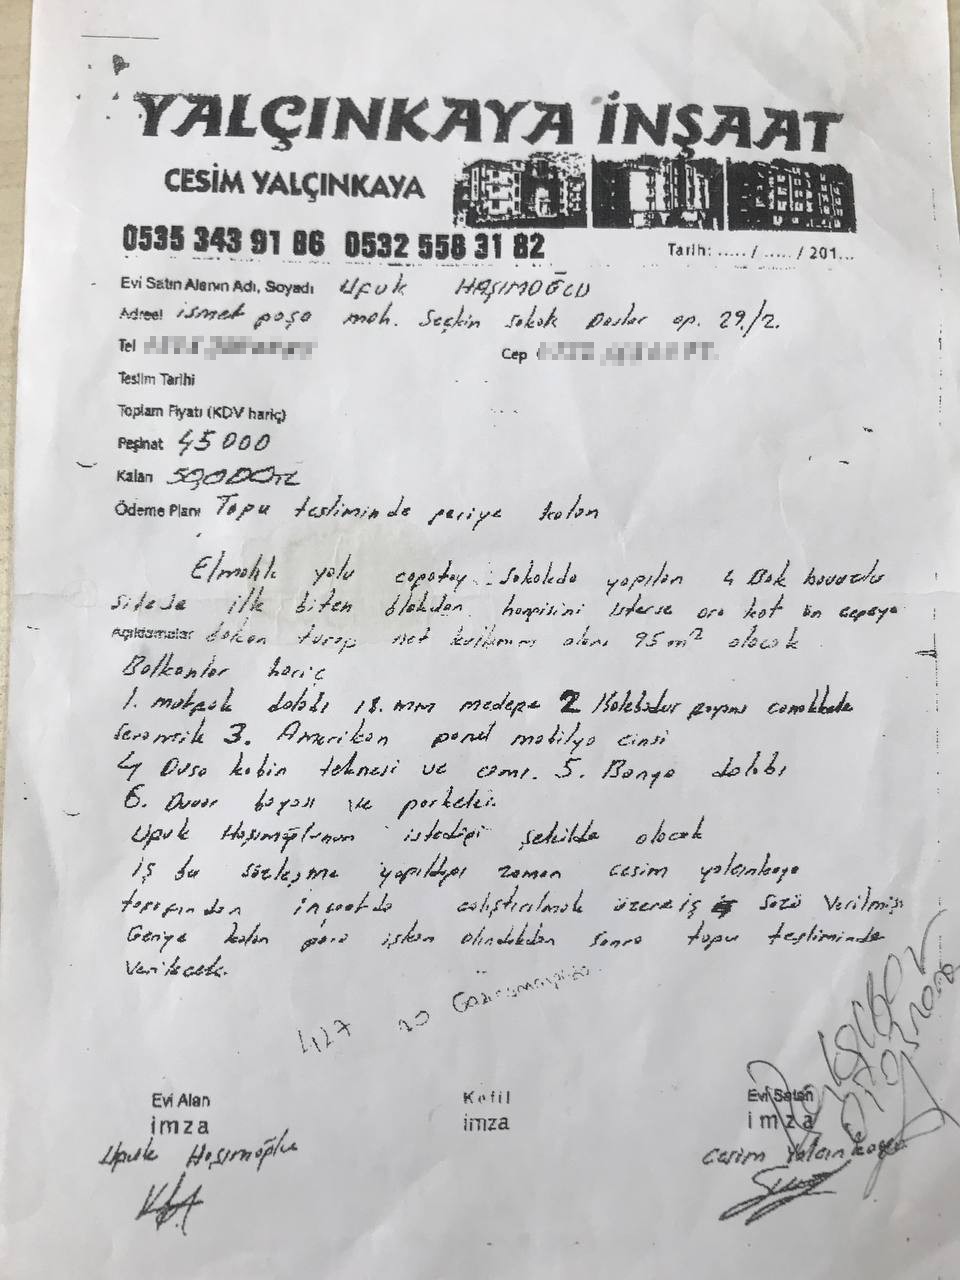 YALÇINKAYA İNŞAAT
CESİM YALÇINKAYA
0535 343 91 86 0532 558 31 82
Tarih: ..... / ..... / 201...
Evi Satın Alanın Adı, Soyadı Ufuk HAŞIMOĞLU
Adresi ismet paşa mah. Seçkin sokak Dostlar ap. 29/2.
Tel
Cep
Teslim Tarihi
Toplam Fiyatı (KDV hariç)
Peşinat 45000
Kalan 50,000TL
Ödeme Planı Tapu tesliminde geriye kalan
Elmalık yolu sokakda yapılan 4 Blok havuzlu
sitede ilk biten blokdan hangisini isterse ara kat ön cepeye
Açıklamalar bakan net kullanım alanı 95 m² olacak
Balkonlar hariç
1. mutpak dolabı 18. mm medepe 2 Kalebodur
seramik 3. Amerikan panel mobilya cinsi
4 Duşa kabin teknesi ve camı. 5. Banyo dolabı
6. Duvar boyası ve parkeler.
Ufuk Haşımoğlunun istediği şekilde olacak
iş bu sözleşme yapıldığı zaman cesim yalçınkaya
tarafından inşaatda çalıştırılmak üzere iş sözü verilmiş
Geriye kalan para iskan alındıkdan sonra tapu tesliminde
verilecek.
Evi Alan
imza
Kefil
imza
Evi Satan
imza
Ufuk Haşımoğlu
cesim Yalçınkaya